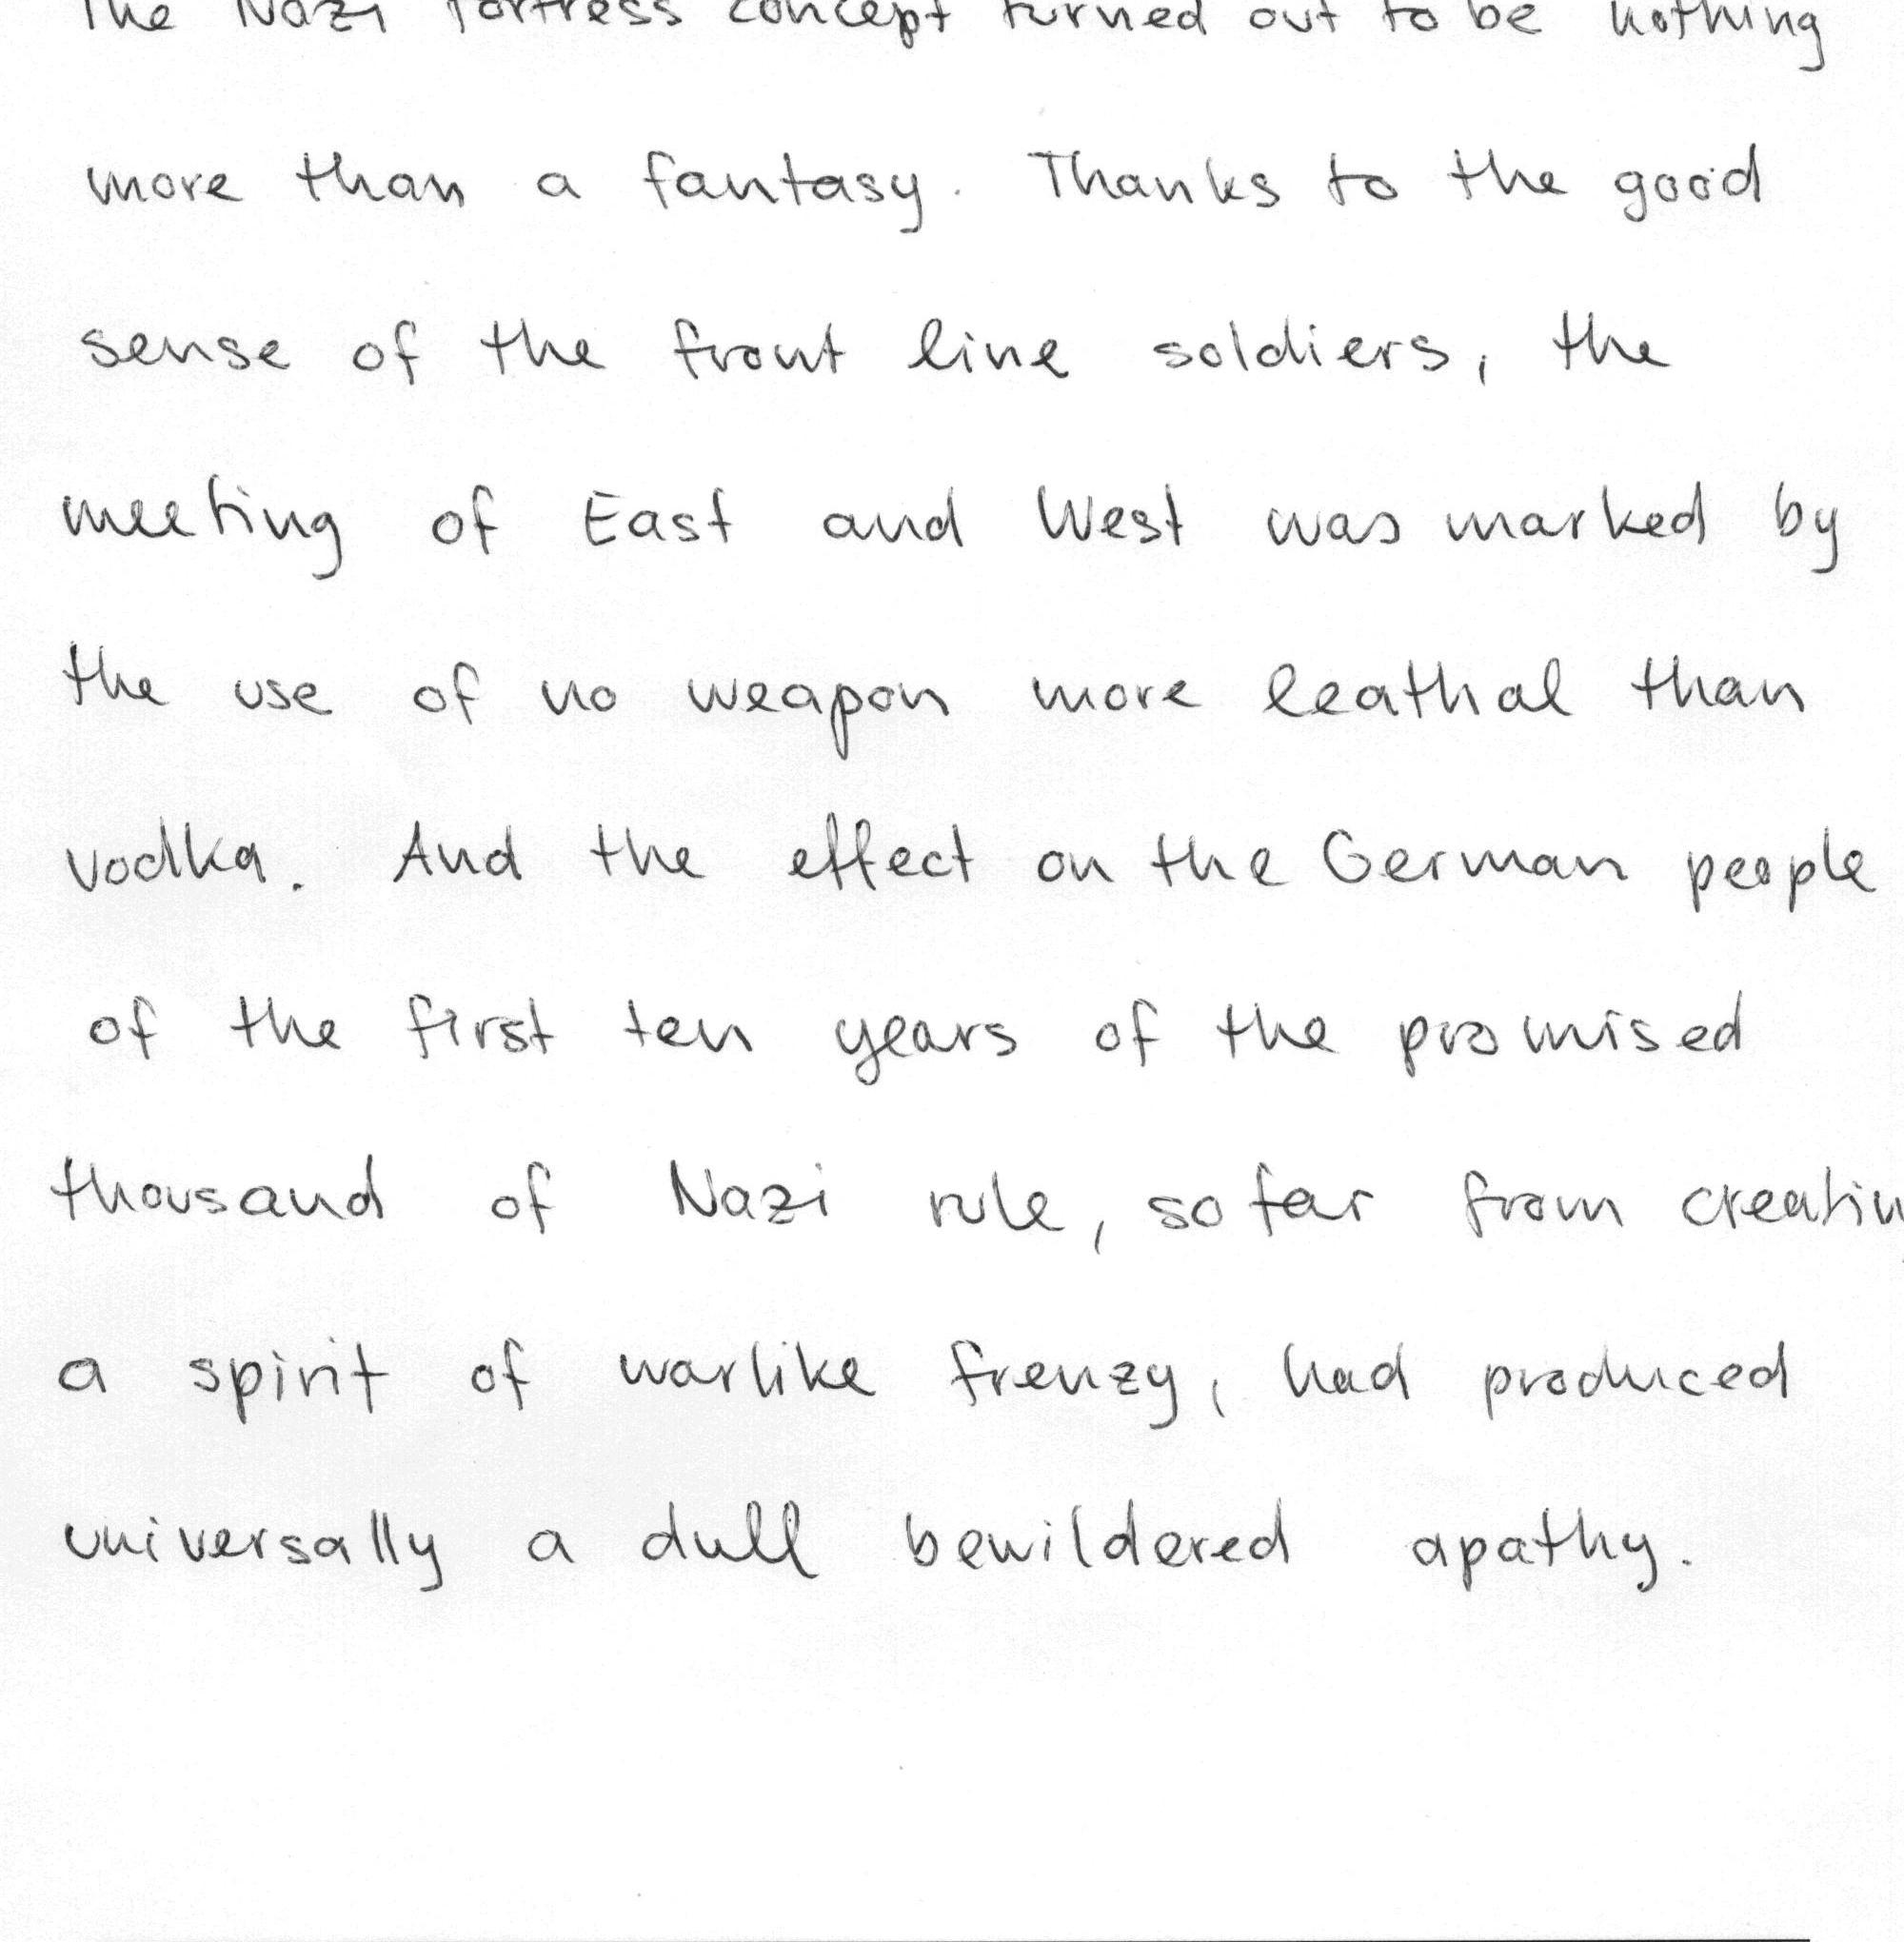 The Nazi fortress concept turned out to be nothing
more than a fantasy. Thanks to the good
sense of the front line soldiers, the
meeting of East and West was marked by
the use of no weapon more leathal than
vodka. And the effect on the German people
of the first ten years of the promised
thousand of Nazi rule, so far from creatin
a spirit of warlike frenzy, had produced
universally a dull bewildered apathy.